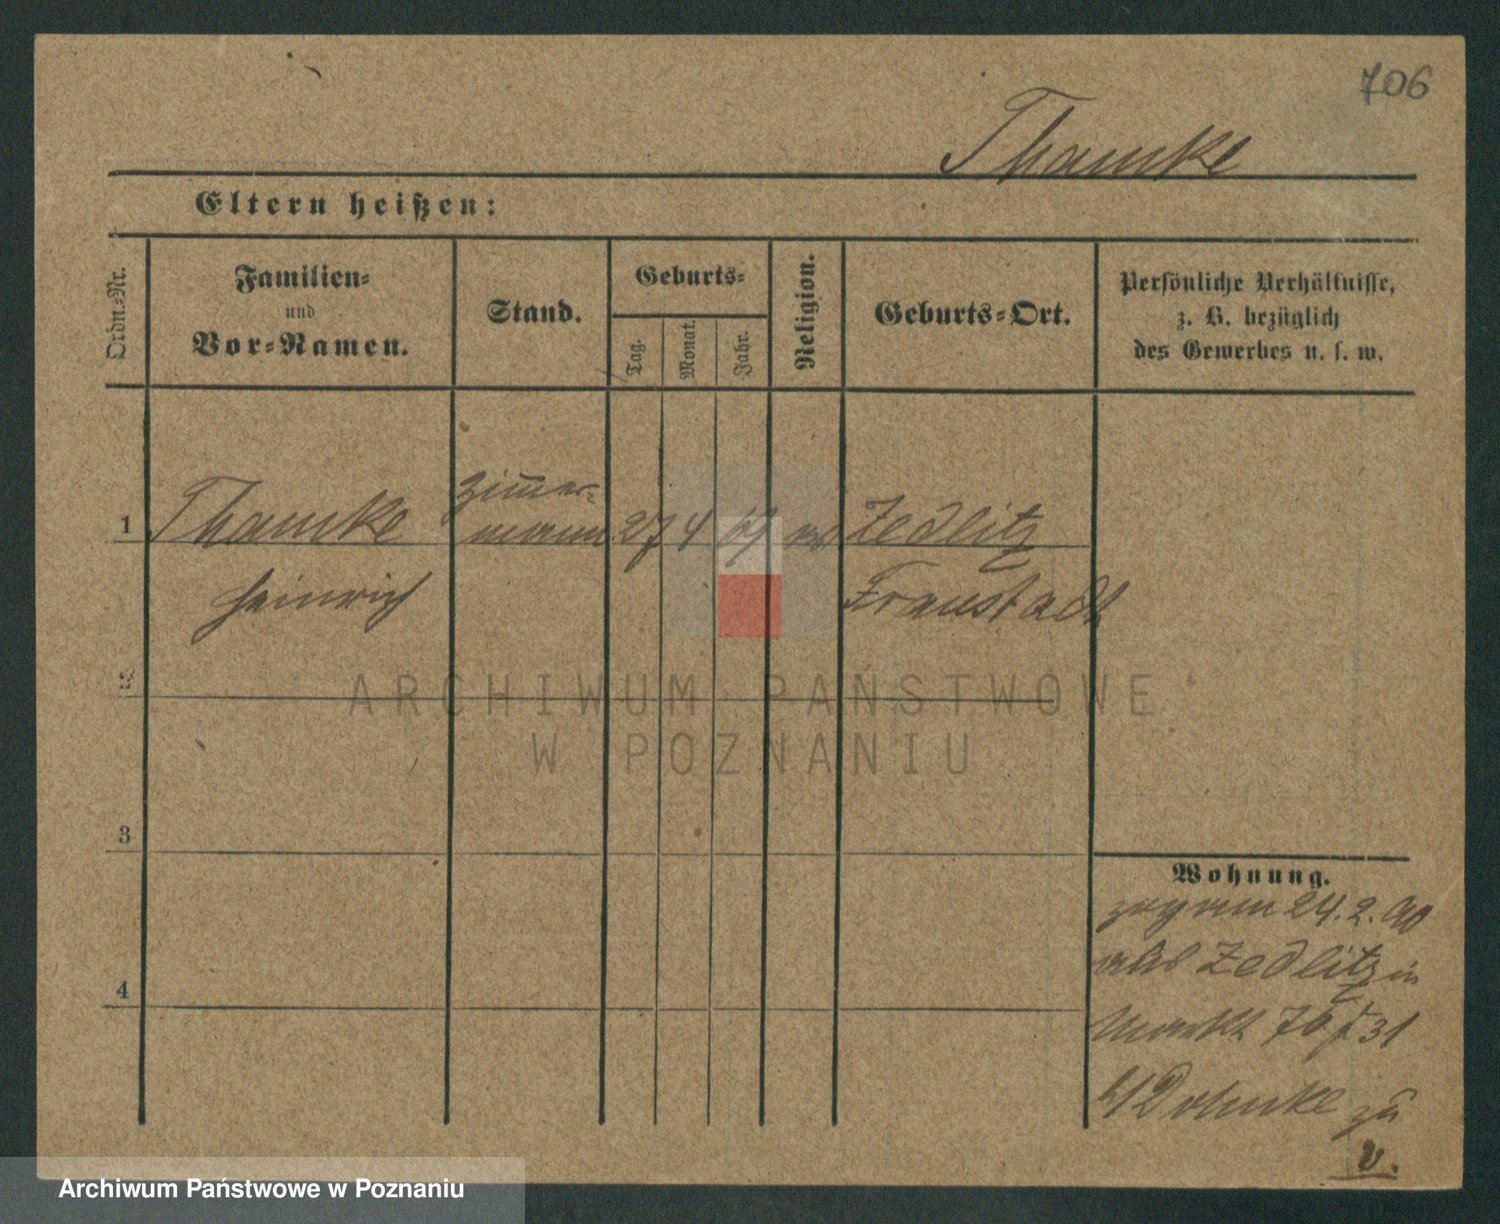 706
Thamke
Eltern heißen:
Ordn.-Nr.
Familien-
und
Vor-Namen.
Stand.
Geburts-
Tag.
Monat.
Jahr.
Religion.
Geburts-Ort.
Persönliche Verhältnisse,
z. B. bezüglich
des Gewerbes u. s. w.
Zimmer-
1 Thamke mann 27 4 67 ev Zedlitz
Heinrich Fraustadt
2
ARCHIWUM PAŃSTWOWE
W POZNANIU
3
Wohnung.
zog am 24.2.90
aus Zedlitz in
Markt 76 31
zu
4
v.
Archiwum Państwowe w Poznaniu